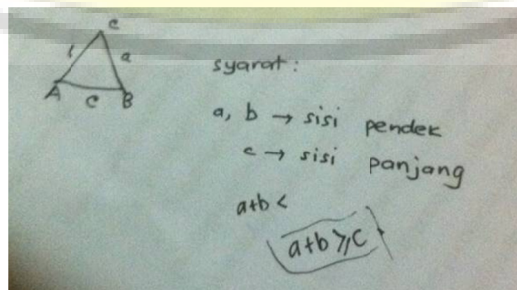 C
a
A
C
B
syarat :
a, b → sisi pendek
c → sisi panjang
a+b <
a+b ⩾ C